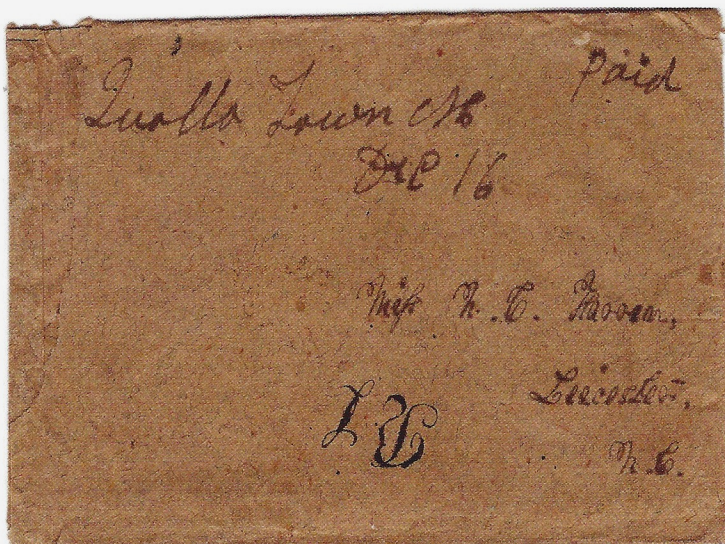 Paid
Qualla Town NC
Dec 16
Miss N. C.
Leicester,
N.C.